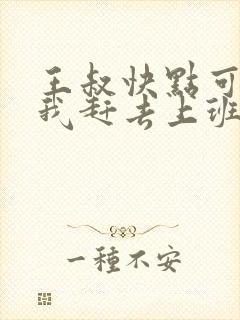 王叔快點可
我赶去上班
一種不安